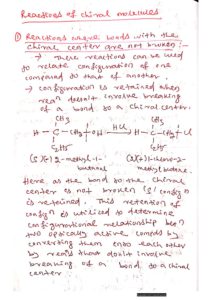 Reactions of chiral molecules
① Reactions whose bonds with the
chiral center are not broken :-
→ These reactions can be used
to relate configuration of one
compound to that of another.
→ configuration is retained when
reaⁿ doesn't involve breaking
of a bond to a chiral center.
CH3 CH3
H - C - CH2 + OH HCl H - C - CH2 + Cl
C2H5 C2H5
(S)(-) 2-methyl-1-
butanol
(S)(+) 1-chloro-2-
methyl butane.
Here as the bond to the chiral
center is not broken
is retained. This retention of
configⁿ is utilized to determine
configurational relationship betⁿ
two optically active comeds by
converting them into each other
by reacns that don't involve
breaking of a bond to a chiral
center.